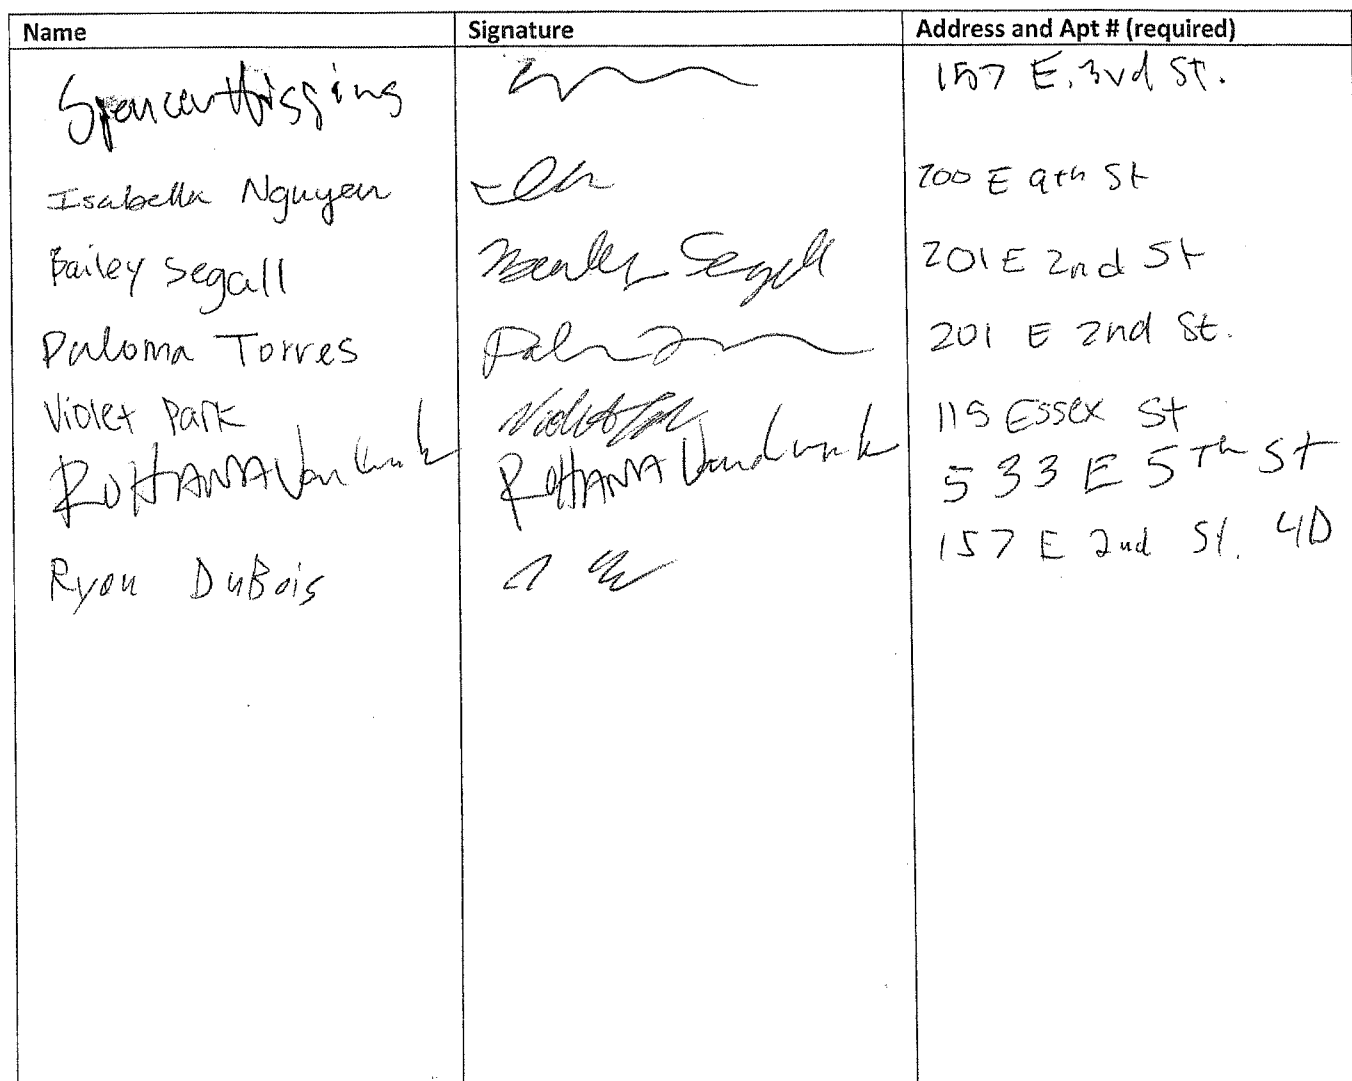 Name Signature Address and Apt # (required)
Spencer Higgins 157 E. 3rd St.
Isabella Nguyen 200 E 9th St
Bailey Segall Segall 201 E 2nd St
Paloma Torres 201 E 2nd St.
Violet Park Violet 115 Essex St
ROHANA ROHANA 533 E 5Th St
Ryan DuBois 157 E 2nd St. 4D